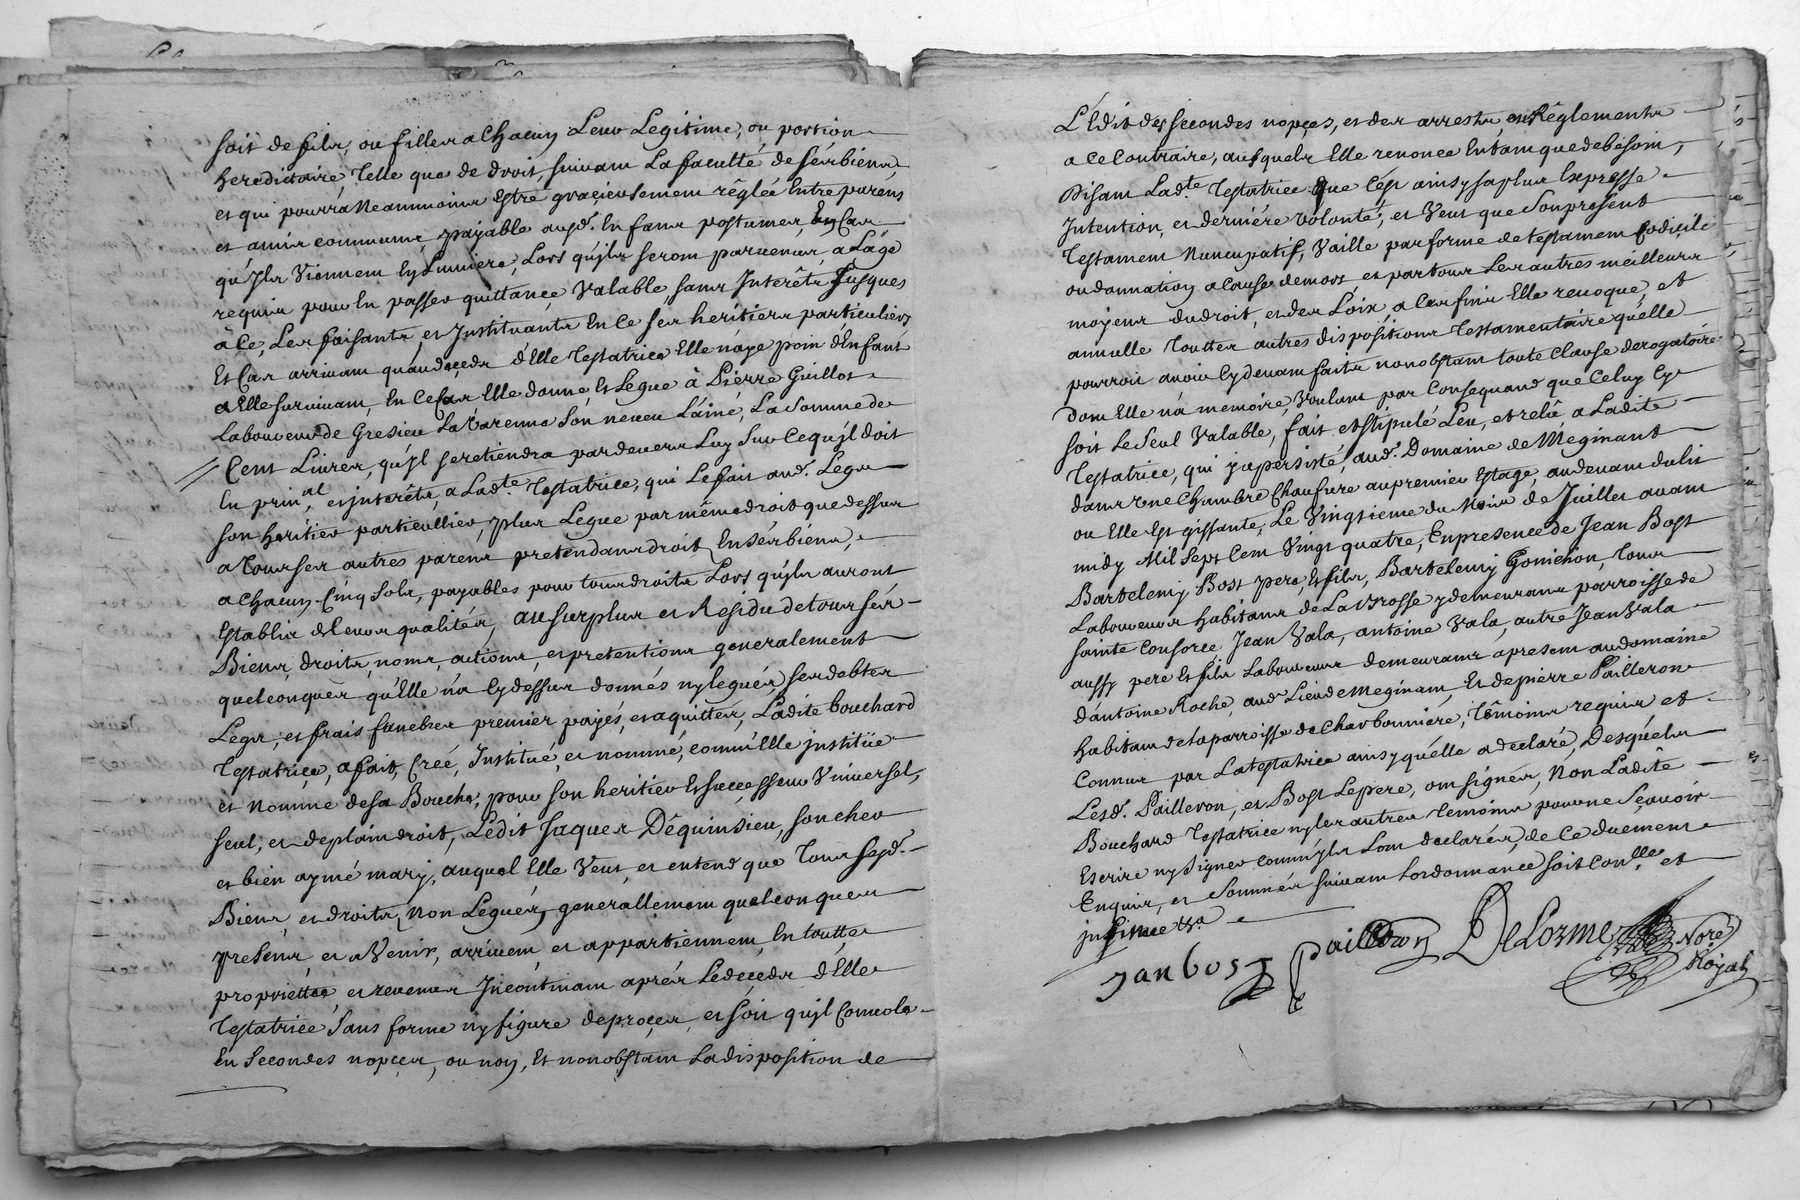 soit de fils, ou filles a chacun Leur Legitime, ou portion
hereditaire Telle que de droit, suivant La faculté de ses biens
et qui pourra Neanmoins Estre graçieusement réglée Entre parens
et amis communs, payable ausd. Enfans postumes, En Cas
qu'Ils Viennent En Lumiere, Lors qu'ils seront parvenus, a L'âge
requis pour En passer quittançe Valable, sans Interêts Jusques
à ce, Les faisants, et Instituants En Ce ses heritiers particuliers
Et Cas arrivant qu'au deçeds d'Elle Testatrice Elle n'aye poin d'Enfant
a Elle survivant, En Ce Cas Elle donne, Et Legue à Pierre Guillot
Laboureur de Gresieu La Varenne Son neveu L'ainé, La Somme de
Cent Livres, qu'jl se retiendra pardevers Luy Sur Ce qu'jl doit
En prin.al et jnterêts, a Lad.te Testatrice, qui Le fait aud. Legs
son Heritier particullier, plus Legue par même droit que dessus
a Tous ses autres parens pretendans droit En ses biens,
a chacun Cinq Sols, payables pour tous droits Lors qu'jls auront
Establis de Leurs qualités, au surplus et Residu de tous ses
Biens, droits, noms, actions, et pretentions generalement
quelconques qu'Elle n'a Cy dessus donnés ny legués, ses debtes
Legs, et frais funebres premier payés, et aquittés, Ladite Bouchard
Testatriçe, a fait, Créé, Institué, et nommé, comm'Elle jnstitüe
et Nomme de sa Bouche, pour son heritier Et suçcesseur Universel,
seul, et de plain droit, Ledit Jaques Dêquinsieu, son cher
et bien aymé mary, auquel Elle Veut, et entend que Tous sesd.
Biens, et droits, Non Legués, generallement quelconques
presens et a Venir, arrivent, et appartiennent En toutte
proprietté, et revenus Incontinant aprés Le deçeds d'Elle
Testatrice Sans forme ny figure de proçes, et soit qu'jl Convole
En Secondes nopçes, ou non, Et nonobstant La disposition de
L'Edit des secondes nopçes, et des arrests, et Rêglements
a Ce Contraire, ausquels Elle renonce En tant que de besoin,
Disant Lad.te Testatrice que C'ést ainsy sa plus Expresse
Intention, et derniére volonté, et Veut que Son present
Testament Nuncupatif, Vaille par forme de testament Codicile
ou donnation a Cause de mort, et par tous Les autres meilleurs
moyens du droit, et des Loix, a Ces fins Elle revoque, et
annulle Touttes autres dispositions Testamentaire qu'elle
pourroit avoir Cy devant faits nonobstant toute Clause derogatoire
Dont Elle n'a memoire, Voulant par Consequand que Celuy Cy
soit Le Seul Valable, fait et stipulé Leu, et relû a Ladite
Testatrice, qui y a persisté, aud. Domaine de Méginant
dans Une Chambre Chaufure au premier Estage, au devant du lit
ou Elle Est gissante, Le Vingtieme du Mois de Juillet avant
midy Mil Sept Cent Vingt quatre, En presence de Jean Bost
Bartelemy Bost pere, Et fils, Bartelemy Gonichon, Tous
Laboureurs habitans de La Brosse y demeurans parroisse de
sainte Consorce Jean Vala, antoine Vala, autre Jean Vala
aussy pere Et fils Laboureurs demeurans a present au domaine
d'antoine Roche, aud. Lieu de Meginant, Et de pierre Pailleron
habitant de La parroisse de Charbonniére, Têmoins requis et
Connus par La testatrice ainsy qu'elle a declaré, Desquéls
Lesd. Pailleron, et Bost Le pere, ont signés, Non Ladite
Bouchard Testatrice ny Les autres Temoins pour ne Sçavoir
Escrire ny Signer Comm'jls L'ont declarés, de Ce duement
Enquis, et Sommés suivant L'ordonnance soit Con.lle et
jnsinue &.a
Jan bost pailleron DeLorme Not.e
Royal